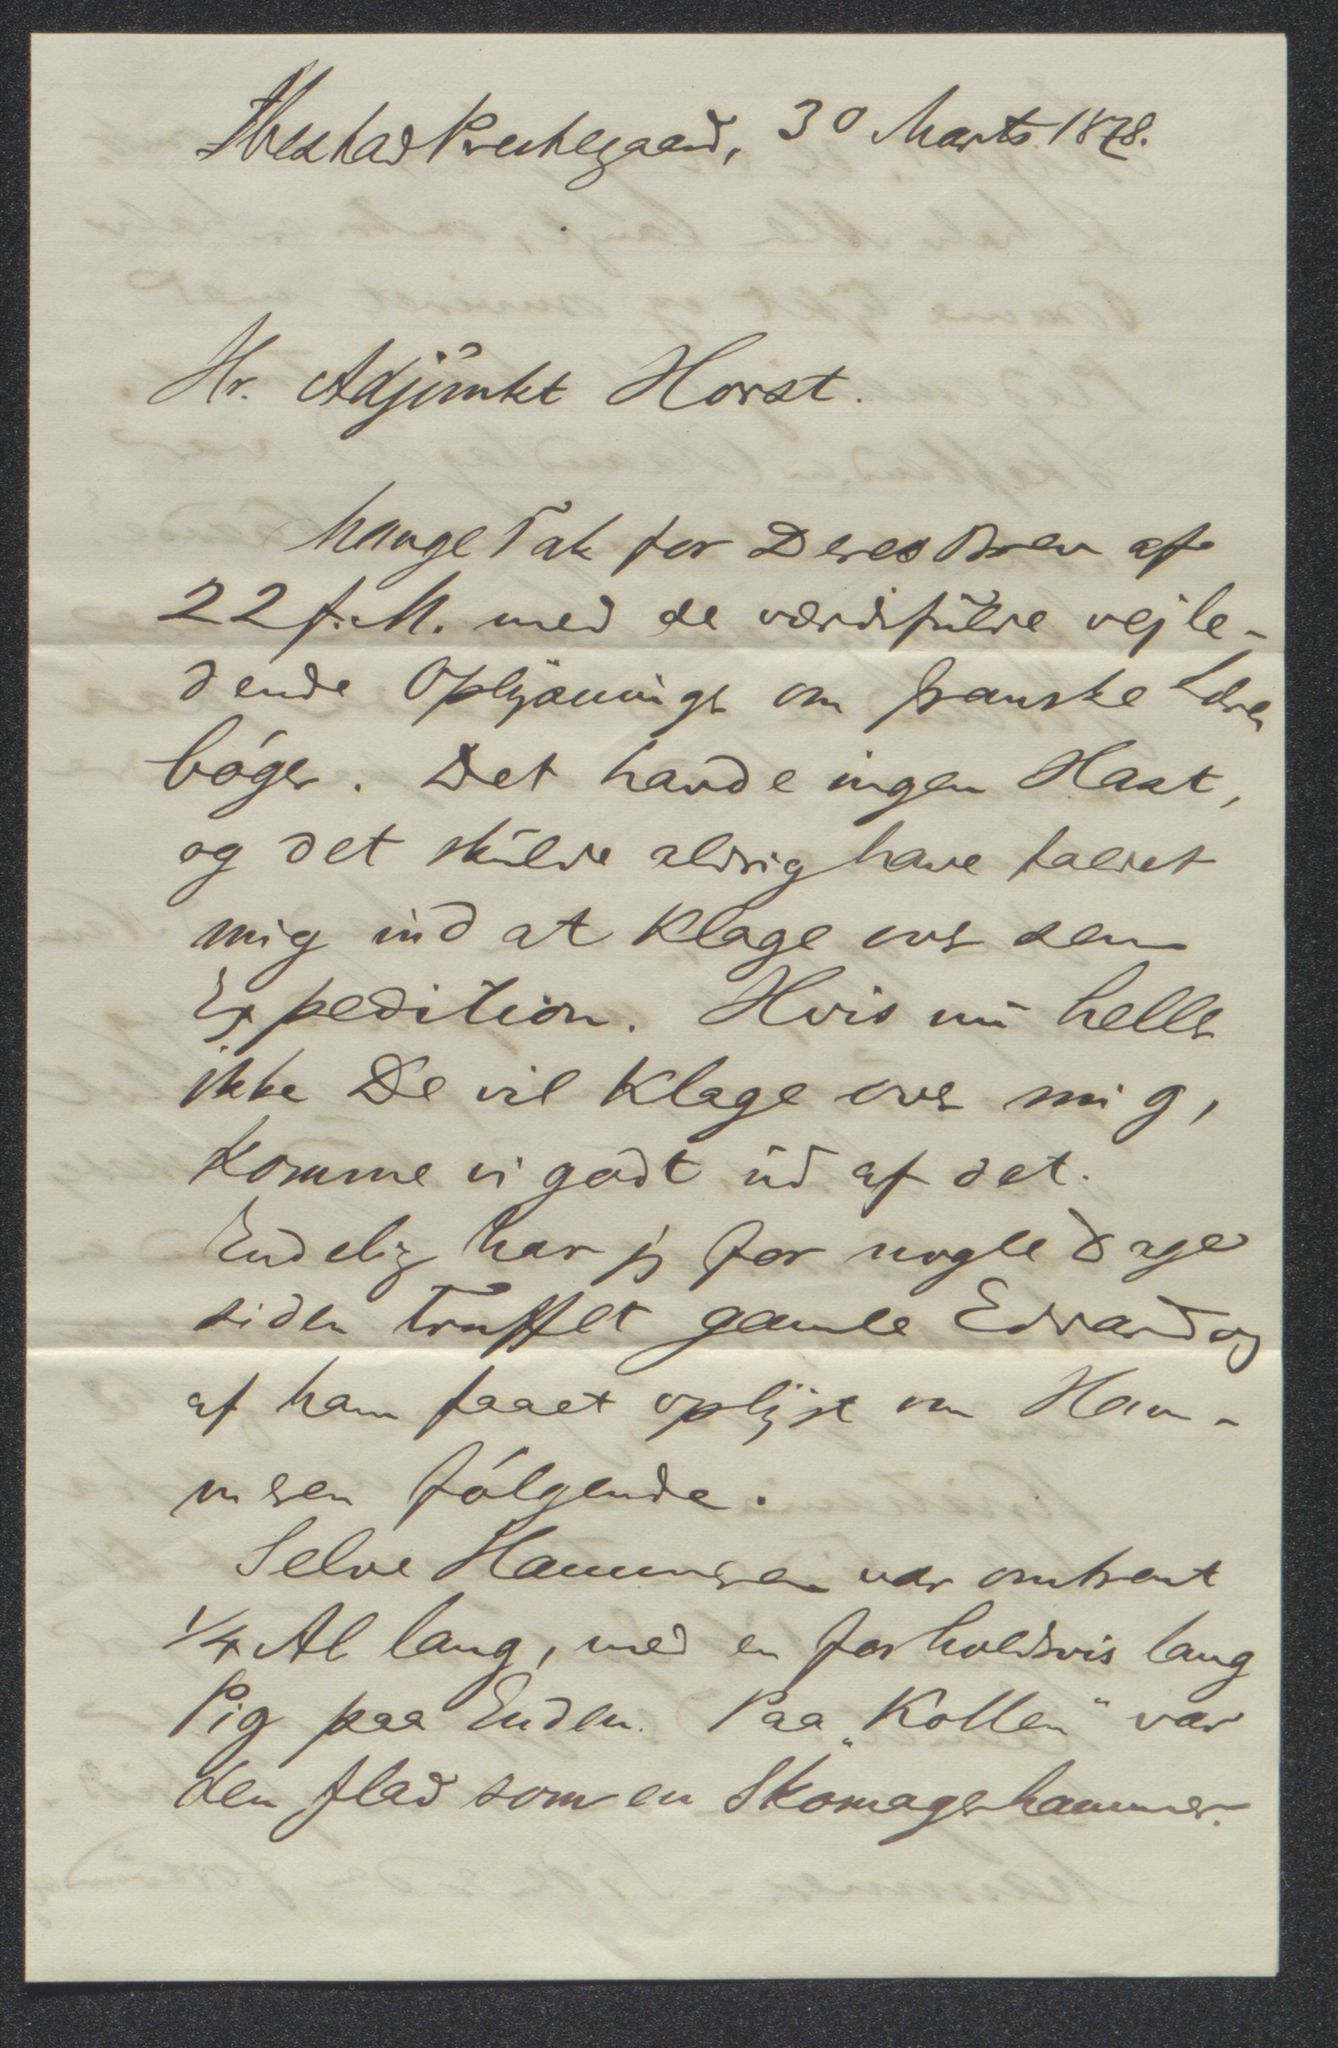 Ibestad Prestegaard, 30 Marts 1878.
Hr. Adjunkt Horst.
Mange Tak for Deres Brev af
22 f. M. med de værdifulde vejle-
dende Oplysninger om franske Lære
bøger. Det havde ingen Hast,
og det skulde aldrig have faldet
mig ind at klage over sen
Expedition. Hvis nu heller
ikke De vil klage over mig,
komme vi godt ud af det.
Endelig har jeg for nogle Dage
siden truffet gamle Edvard og
af ham faaet oplyst om Ham-
meren følgende.
Selve Hammeren var omtrent
1/4 Al lang, med en forholdsvis lang
Pig paa Enden. Paa „Kollen" var
den flad som en Skomagerhammer.